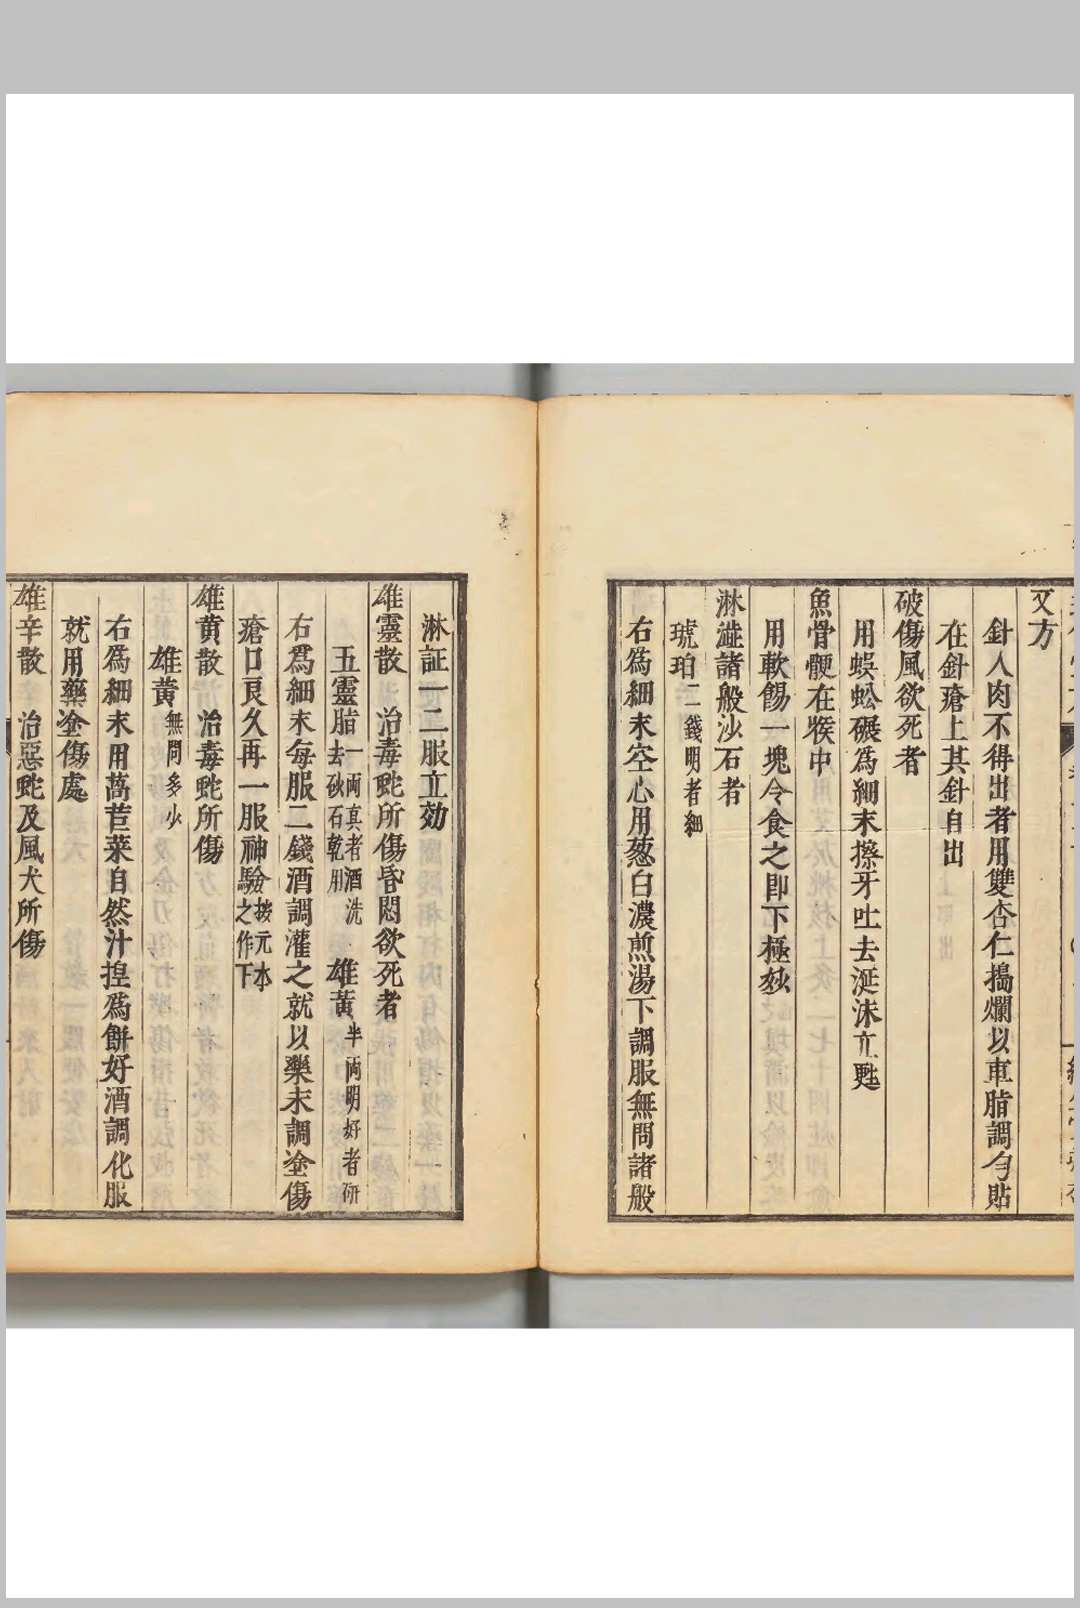 又方
針入肉不得出者用雙杏仁搗爛以車脂調勻貼
在針瘡上其針自出
破傷風欲死者
用蜈蚣碾爲細末擦牙吐去涎沫立甦
魚骨骾在喉中
用軟餳一塊令食之卽下極妙
淋澁諸般沙石者
琥珀二錢明者細
右爲細末空心用葱白濃煎湯下調服無問諸般
淋証一二服立効
雄靈散 治毒虵所傷昏悶欲死者
五靈脂一両真者酒洗去砂石乾用 雄黃半両明好者研
右爲細末每服二錢酒調灌之就以藥末調塗傷
瘡口良久再一服神驗之按元本作下
雄黃散 治毒虵所傷
雄黃無問多少
右爲細末用萵苣菜自然汁揑爲餅好酒調化服
就用藥塗傷處
雄辛散 治惡虵及風犬所傷